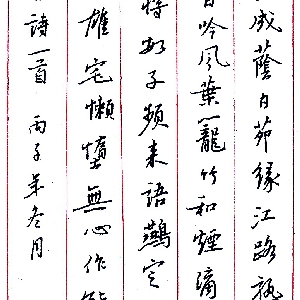 成蔭白茆緣江路熟
日吟風葉籠竹和煙滴
將數子頻來語燕定
雄宅懶惰無心作
詩一首 丙子年冬月